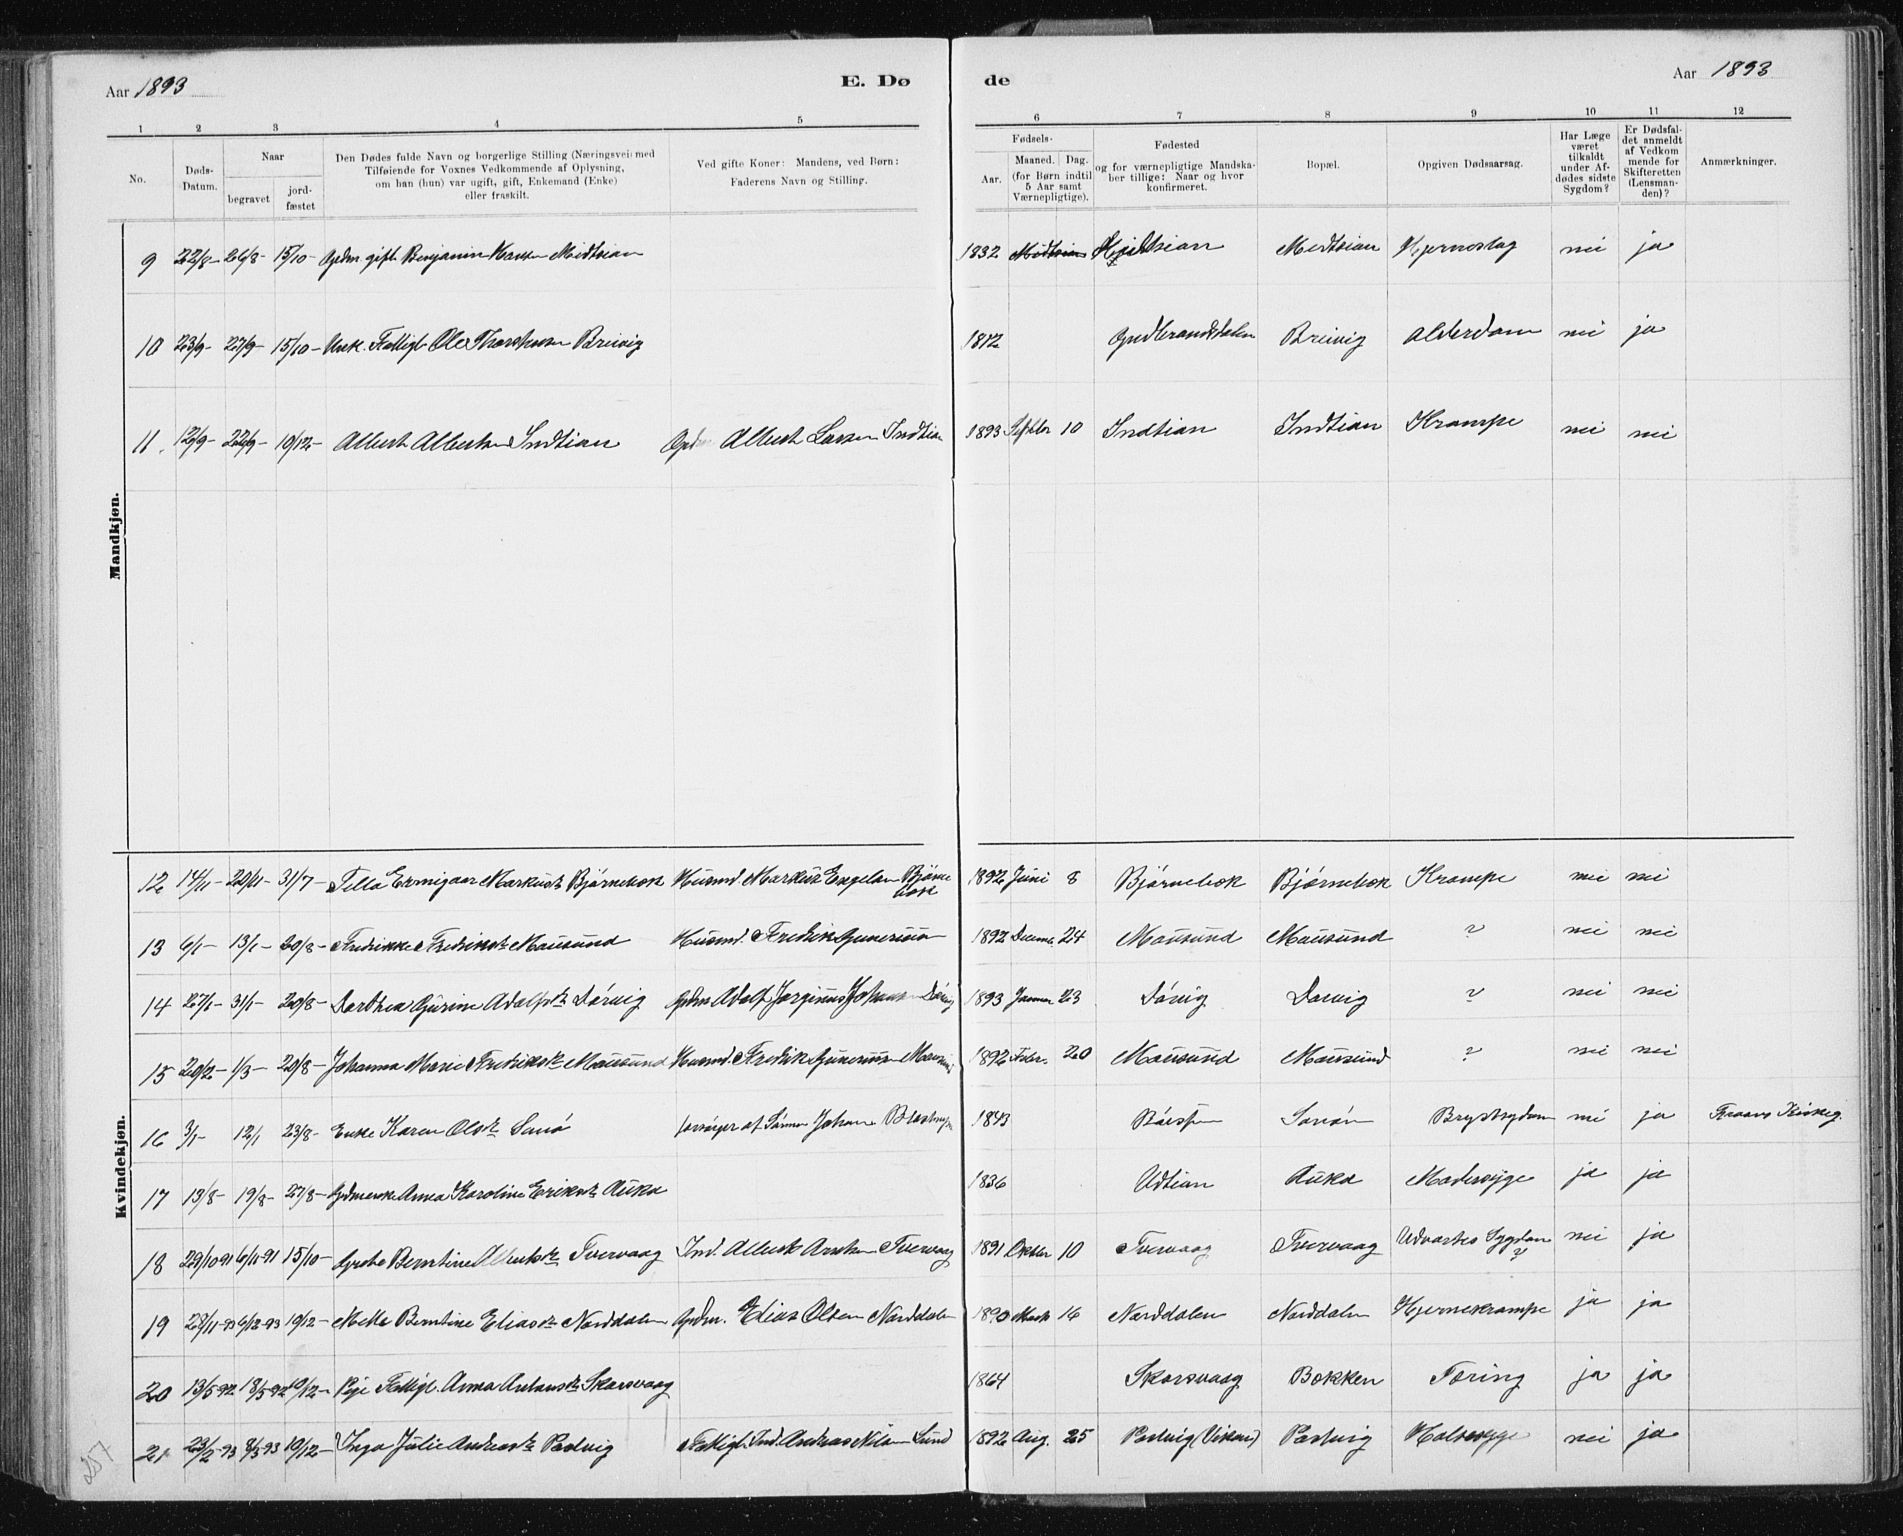 Aar 1893 E. Dø de Aar 1893
1 2 3 4 5 6 7 8 9 10 11 12
No.
Døds-Datum.
Naar
begravet
jord-fæstet
Den Dødes fulde Navn og borgerlige Stilling (Næringsvei med
Tilføiende for Voxnes Vedkommende af Oplysning,
om han (hun) var ugift, gift, Enkemand (Enke)
eller fraskilt.
Ved gifte Koner: Mandens, ved Børn:
Faderens Navn og Stilling.
Fødsels-
Aar.
Maaned. Dag.
(for Børn indtil
5 Aar samt
Værnepligtige).
Fødested
og for værnepligtige Mandska-
ber tillige: Naar og hvor
konfirmeret.
Bopæl.
Opgiven Dødsaarsag.
Har Læge
været
tilkaldt
under Af-
dødes sidste
Sygdom?
Er Dødsfal-
det anmeldt
af Vedkom
mende for
Skifteretten
(Lensman-
den)?
Anmærkninger.
Mandkjøn.
9 22/8 - 26/8 - 15/10 - Gdm gift Benjamin Hansen Midtsian 1832 Midtsian Midtsian Hjerneslag nei ja
10 23/9 - 27/9 - 15/10 - Ole Breivig 1812 Gudbrandsdalen Breivig Alderdom nei ja
11. 12/9 - 22/9 - 10/12 - Albert Albertsen Indtian Albert Larsen Indtian 1893 Septbr 10 Indtian Indtian Krampe nei nei
Kvindekjøn.
12 14/11 - 20/11 - 31/7 - Markusdt Bjørnebok Husmd. Markus Bjørne
bok 1892 Juni 8 Bjørnebok Bjørnebok Krampe nei nei
13 6/1 - 13/1 - 20/8 - Fredrikke Fredriksdt Mausund Husmd. Fredrik Gunerius 1892 Decmb. 24 Mausund Mausund ? nei nei
14 27/1 - 31/1 - 20/8 - Dorthea Gurine Adolfsdt Dørvig Gdm Adolf Jørginus Johansen Dørvig 1893 Januar 23 Dørvig Dørvig ? nei nei
15 20/2 - 1/3 - 20/8 - Johanna Marie Fredriksdt Mausund Husmd. Fredrik Gunerius Mausund 1892 Febr. 20 Mausund Mausund ? nei nei
16 3/1 - 12/1 23/8 - Enke Karen Olsdt forsørges af Sønnen Johan 1843 Brystsygdom nei ja
17 13/8 - 19/8 - 27/8 - Anna Karoline Eriksdt Auka 1836 Udtian Auka Mavesyge ja ja
18 29/10-91 6/11-91 15/10 - Berntine Albertsdt Tvervaag Ind. Albert Tvervaag 1891 Oktbr 10 Tvervaag Tvervaag Udvortes Sygdom ? nei ja
19 28/11-93 6/12-93 19/12 - Berntine Eliasdt Norddalen Gdm. Elias Olsen Norddalen 1890 Marts 16 Norddalen Norddalen Hjernekrampe ja ja
20 13/5-92 18/5-92 10/12 - Pige Fattigl. Anna Antonsdt Skarsvaag 1864 Skarsvaag Bokken Tæring ja ja
21 23/2-93 8/3-93 10/12 - Inga Julie Andreasdt Fattigl. Ind. Andreas Nilsen Lund 1892 Aug. 25 Halssyge nei ja
257